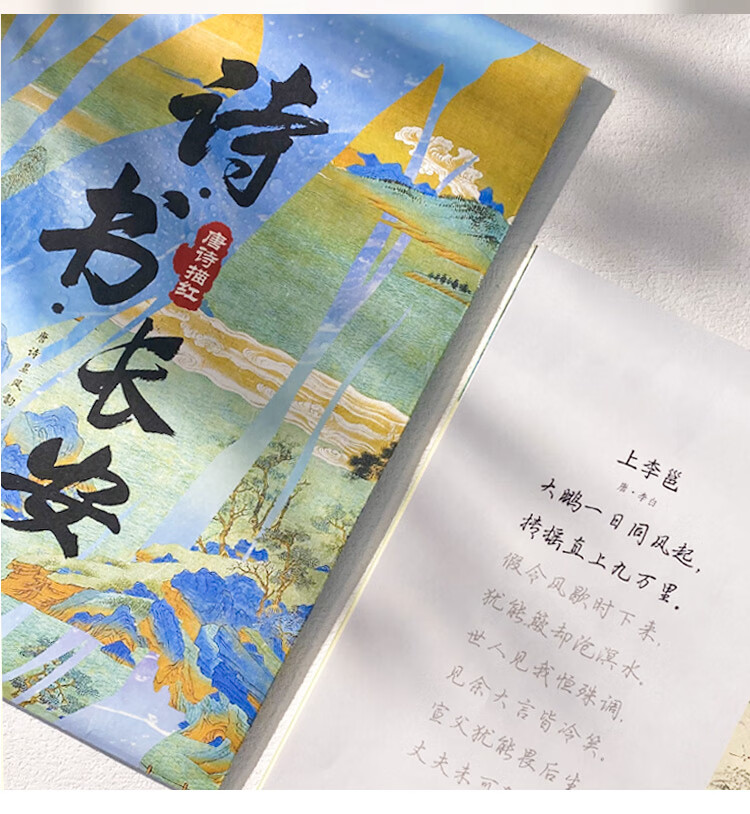 诗书长安
唐诗描红
唐诗里风韵
上李邕
唐·李白
大鹏一日同风起,
抟摇直上九万里。
假令风歇时下来,
犹能簸却沧溟水。
世人见我恒殊调,
见余大言皆冷笑。
宣父犹能畏后生
丈夫未可